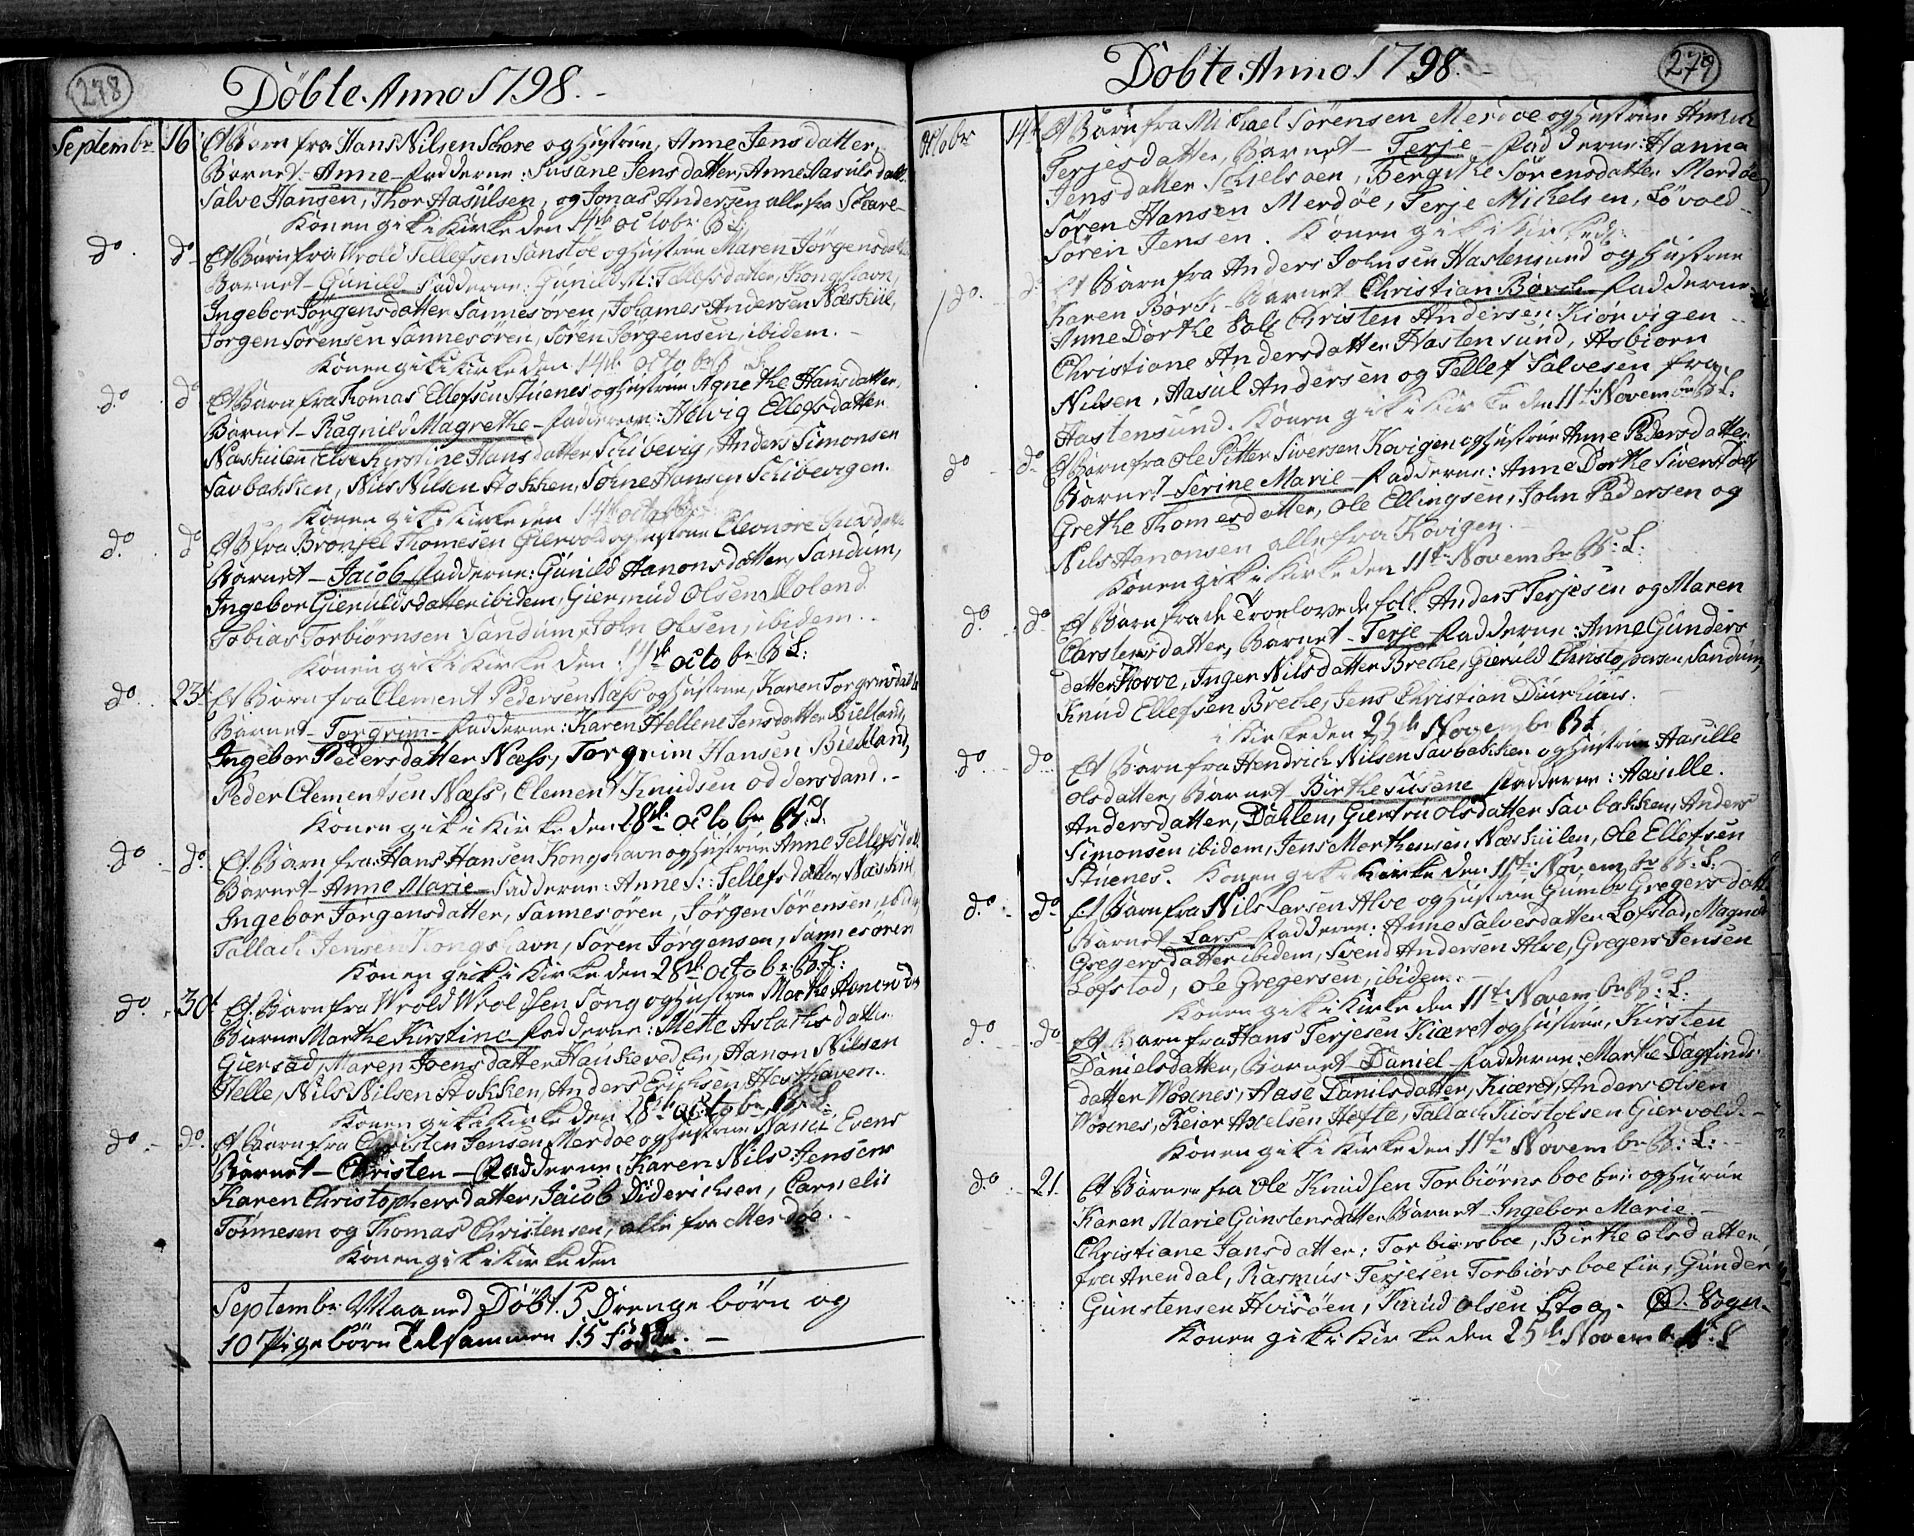 278
Döbte Anno 1798.
Septembr 16 Et Barn fra Hans Nilsen Schare og hustrue, Anne Jensdatter,
Barnet - Anne - fadderne: Susane Jensdatter, Anne Aasulsdatt.
Salve Hansen, Thor Aasulsen, og Jonas Andersen alle fra Schare-
Konen gik i Kirke den 14th octobr
do. do Et Barn fra Wrold Tellefsen Sanstøe og hustrue Maren Jörgensdatter
Barnet - Gunild fadderne: Gunild M: Tellefsdatter, Kongshavn,
Ingebor Jörgensdatter Sannesören, Johannes Andersen Næskiil,
Jörgen Sörensen Sannesören, Sören Jörgensen, ibidem.
Konen gik i Kirke den 14th octobr
do. do Et Barn fra Thomas Ellefsen Stuenes og hustrue Agnethe Hansdatter,
Barnet - Ragnild Magrethe - fadderne: Helvig Ellefsdatter
Næskiilen, Else Kirstine Hansdatter Schibevig, Anders Simonsen
Savbakken, Nils Nilsen Stokken, Söhne Hansen Schibevigen.
Konen gik i Kirke den 14th octobr
do. do Et B fra Bronsel Thomesen Giervold og hustrue Eleonore
Barnet - Jacob fadderne: Gunild Hanonsdatter, Sandum,
Ingebor Gieruldsdatter ibidem, Giermud Olsen Roland
Tobias Torbiörnsen Sandum, John Olsen, ibidem.
Konen gik i Kirke den 14th octobr B L:
do. 23t Et Barn fra Clement Pedersen Næss og hustrue, Karen Torgrimsdatt
Barnet - Torgrim - fadderne: Karen Hellene Jensdatter Bielland,
Ingebor Pedersdatter Næss, Torgrim Hansen Bielland,
Peder Clementsen Næss, Clement Knudsen oddersdand.
Konen gik i Kirke den 28th octobr B: L:
do. do Et Barn fra Hans Hansen Kongshavn og hustrue Anne Tellefsdatt.
Barnet - Anne Marie - fadderne: Anne S: Tellefsdatter Næskiil,
Ingebor Jörgensdatter, Sannesören, Jörgen Sörensen, ibidem,
Tallach Jensen Kongshavn, Sören Jörgensen, Sannesören
Konen gik i Kirke den 28th octobr B: L:
do. 30t Et Barn fra Wrold Wroldsen Song og hustrue Marthe
Barnet Marthe Kirstine fadderne: Mette Aslachsdatter
Giersad, Maren Joensdatter Haukeved Eie, Hanon Nilsen
Helle, Nils Nilsen Stokken, Anders Erichsen Hasthaven.
Konen gik i Kirke den 28th octobr B: L:
do. do. Et Barn fra Christen Jensen Merdøe og hustrue Evens
Barnet - Christen - fadderne: Karen Nils Jensens
Karen Christophersdatter, Jacob Diderichsen, Carnelis
Tönnesen og Thomas Christensen, alle fra Merdøe.
Konen gik i Kirke den
Septembr Maaned Döbt. 5 Drenge börn og
10 Pige börn Tilsammen 15 födte.
279
Döbte Anno 1798.
Octobr 14t Et Barn fra Michael Sörensen Merdøe og hustrue
Terjesdatter, Barnet - Terje - fadderne: Hanna
Jensdatter Schielsøen, Bergithe Sörensdatter Merdöe
Sören Hansen Merdöe, Terje Michelsen, Lövold
Sören Jensen. Konen gik i Kirke d:
do. d. Et Barn fra Anders Johnsen Hastensund og hustrue
Karen Börch - Barnet Christian Börch - fadderne
Anne Dorthe Christen Andersen Kiörvigen
Christiane Andersdatter Hastensund, Asbiörn
Nilsen, Aasul Andersen og Tellef Salvesen fra
Hastensund. Konen gik i Kirke den 11te Novembr B: L:
do do. Et Barn fra Ole Pitter Siversen Kovigen og hustrue Anne Pedersdatter
Barnet - Serine Marie - fadderne: Anne Dorthe Siversdatt
Grethe Thomesdatter, Ole Ellingsen, John Pedersen og
Nils Hanonsen alle fra Kovigen.
Konen gik i Kirke den 11te Novembr B: L:
do. do. Et Barn fra de Trorlovede folk Anders Terjesen og Maren
Carstensdatter, Barnet - Terje fadderne: Anne Gunders
datter Torve, Inger Nilsdatter Breke, Gieruld Christophersen Sandum,
Knud Ellefsen Breke, Jens Christian Duurhuus.
i Kirke den 25th Novembr B L
do. do. Et Barn fra Hendrich Nilsen Savbakken og hustrue Aasille
Olsdatter, Barnet Birthe Susane fadderne: Aasille
Andersdatter, Dahlen, Giertru Olsdatter Savbakken, Anders
Simonsen ibidem, Jens Morthensen Næskiilen, Ole Ellefsen
Stuenes. Konen gik i Kirke den 11te Novembr B: L:
do. do Et Barn fra Nils Larsen Alve og hustrue Gumbr Gregersdatter
Barnet Lars fadderne: Anne Salvesdatter Lofstad, Magnild
Gregersdatter ibidem, Svend Andersen Alve, Gregers Jensen
Lofstad, Ole Gregersen, ibidem.
Konen gik i Kirke den 11te Novembr B: L:
do. do Et Barn fra Hans Terjesen Kiæret og hustrue, Kirsten
Danielsdatter, Barnet - Daniel fadderne: Marthe Dagfinds-
datter Woxnes, Aase Danilsdatter, Kiæret, Anders Olsen
Woxnes, Reior Axelsen Hefte, Tallach Kiöstolsen Giervold.
Konen gik i Kirke den 11te Novembr B: L:
do. 21. Et Barn fra Ole Knudsen Torbiörnsboe Eie og hustrue
Karen Marie Gunstensdatter Barnet - Ingebor Marie.
Christiane Jansdatter, Torbiörsboe, Birthe Olsdatter,
fra Arendal, Rasmus Terjesen Torbiörsboe Eie, Gunder
Gunstensen Hvisöen, Knud Olsen Stoa.
Konen gik i Kirke den 25th Novembr B: L